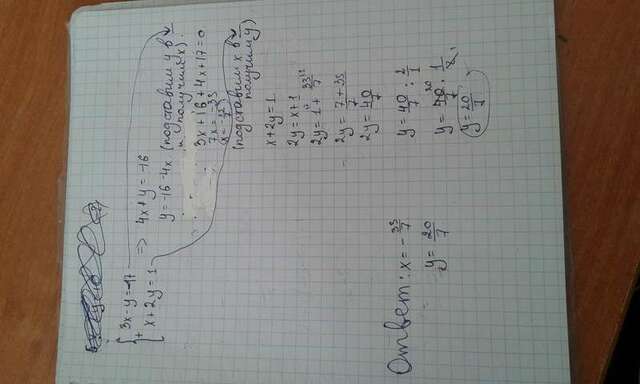 3x-y=-17
x+2y=1
=> 4x+y=-16
y=-16-4x (подставим y в
и получим x).
3x+16+4x+17=0
7x=-33
x=-33/7
(подставим x в
получим y)
x+2y=1
2y=x+1
2y=1+33/7
2y=7+33/7
2y=40/7
y=40/7:2/1
y=40/7·1/2
y=20/7
Ответ: x=-33/7
y=20/7